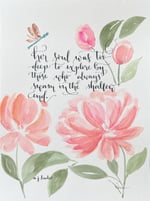 Her soul was too
deep to explore by
those who always
swam in the shallow
end.